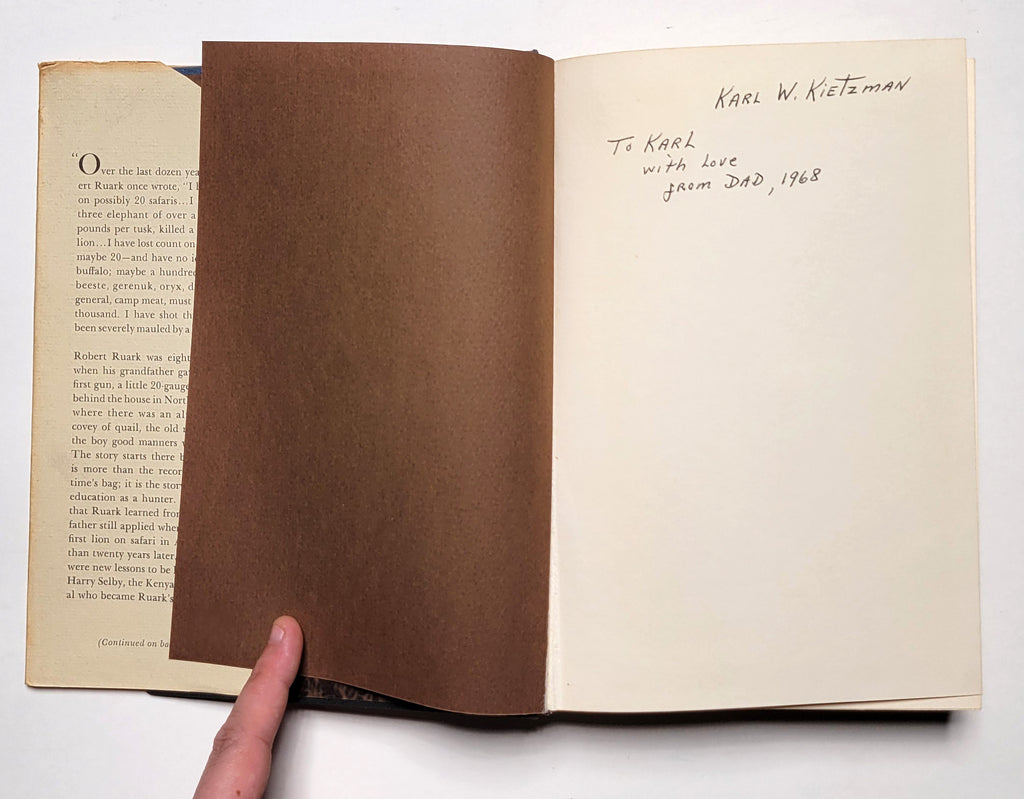 “Over the last dozen yea
ert Ruark once wrote, “I
on possibly 20 safaris...I
three elephant of over a
pounds per tusk, killed a
lion...I have lost count on
maybe 20—and have no
buffalo; maybe a hundred
beeste, gerenuk, oryx, d
general, camp meat, must
thousand. I have shot th
been severely mauled by a
Robert Ruark was eight
when his grandfather ga
first gun, a little 20-gauge
behind the house in Nort
where there was an al
covey of quail, the old
the boy good manners
The story starts there b
is more than the recor
time's bag; it is the stor
education as a hunter.
that Ruark learned from
father still applied when
first lion on safari in A
than twenty years later.
were new lessons to be
Harry Selby, the Kenya
al who became Ruark's
(Continued on ba
KARL W. KIETZMAN
To KARL
with Love
from DAD, 1968